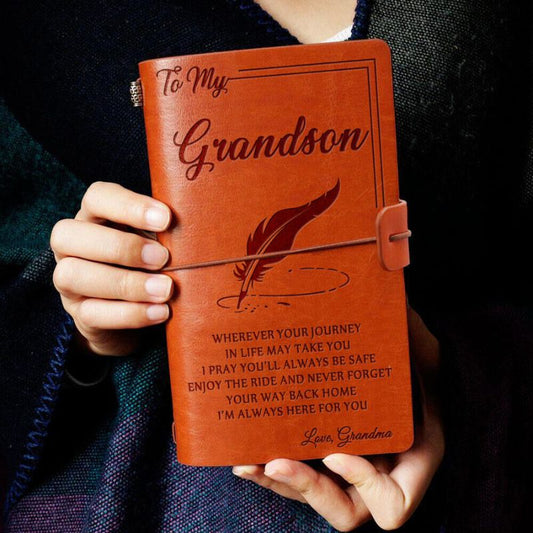 To My
Grandson
WHEREVER YOUR JOURNEY
IN LIFE MAY TAKE YOU
I PRAY YOU'LL ALWAYS BE SAFE
ENJOY THE RIDE AND NEVER FORGET
YOUR WAY BACK HOME
I'M ALWAYS HERE FOR YOU
Love, Grandma